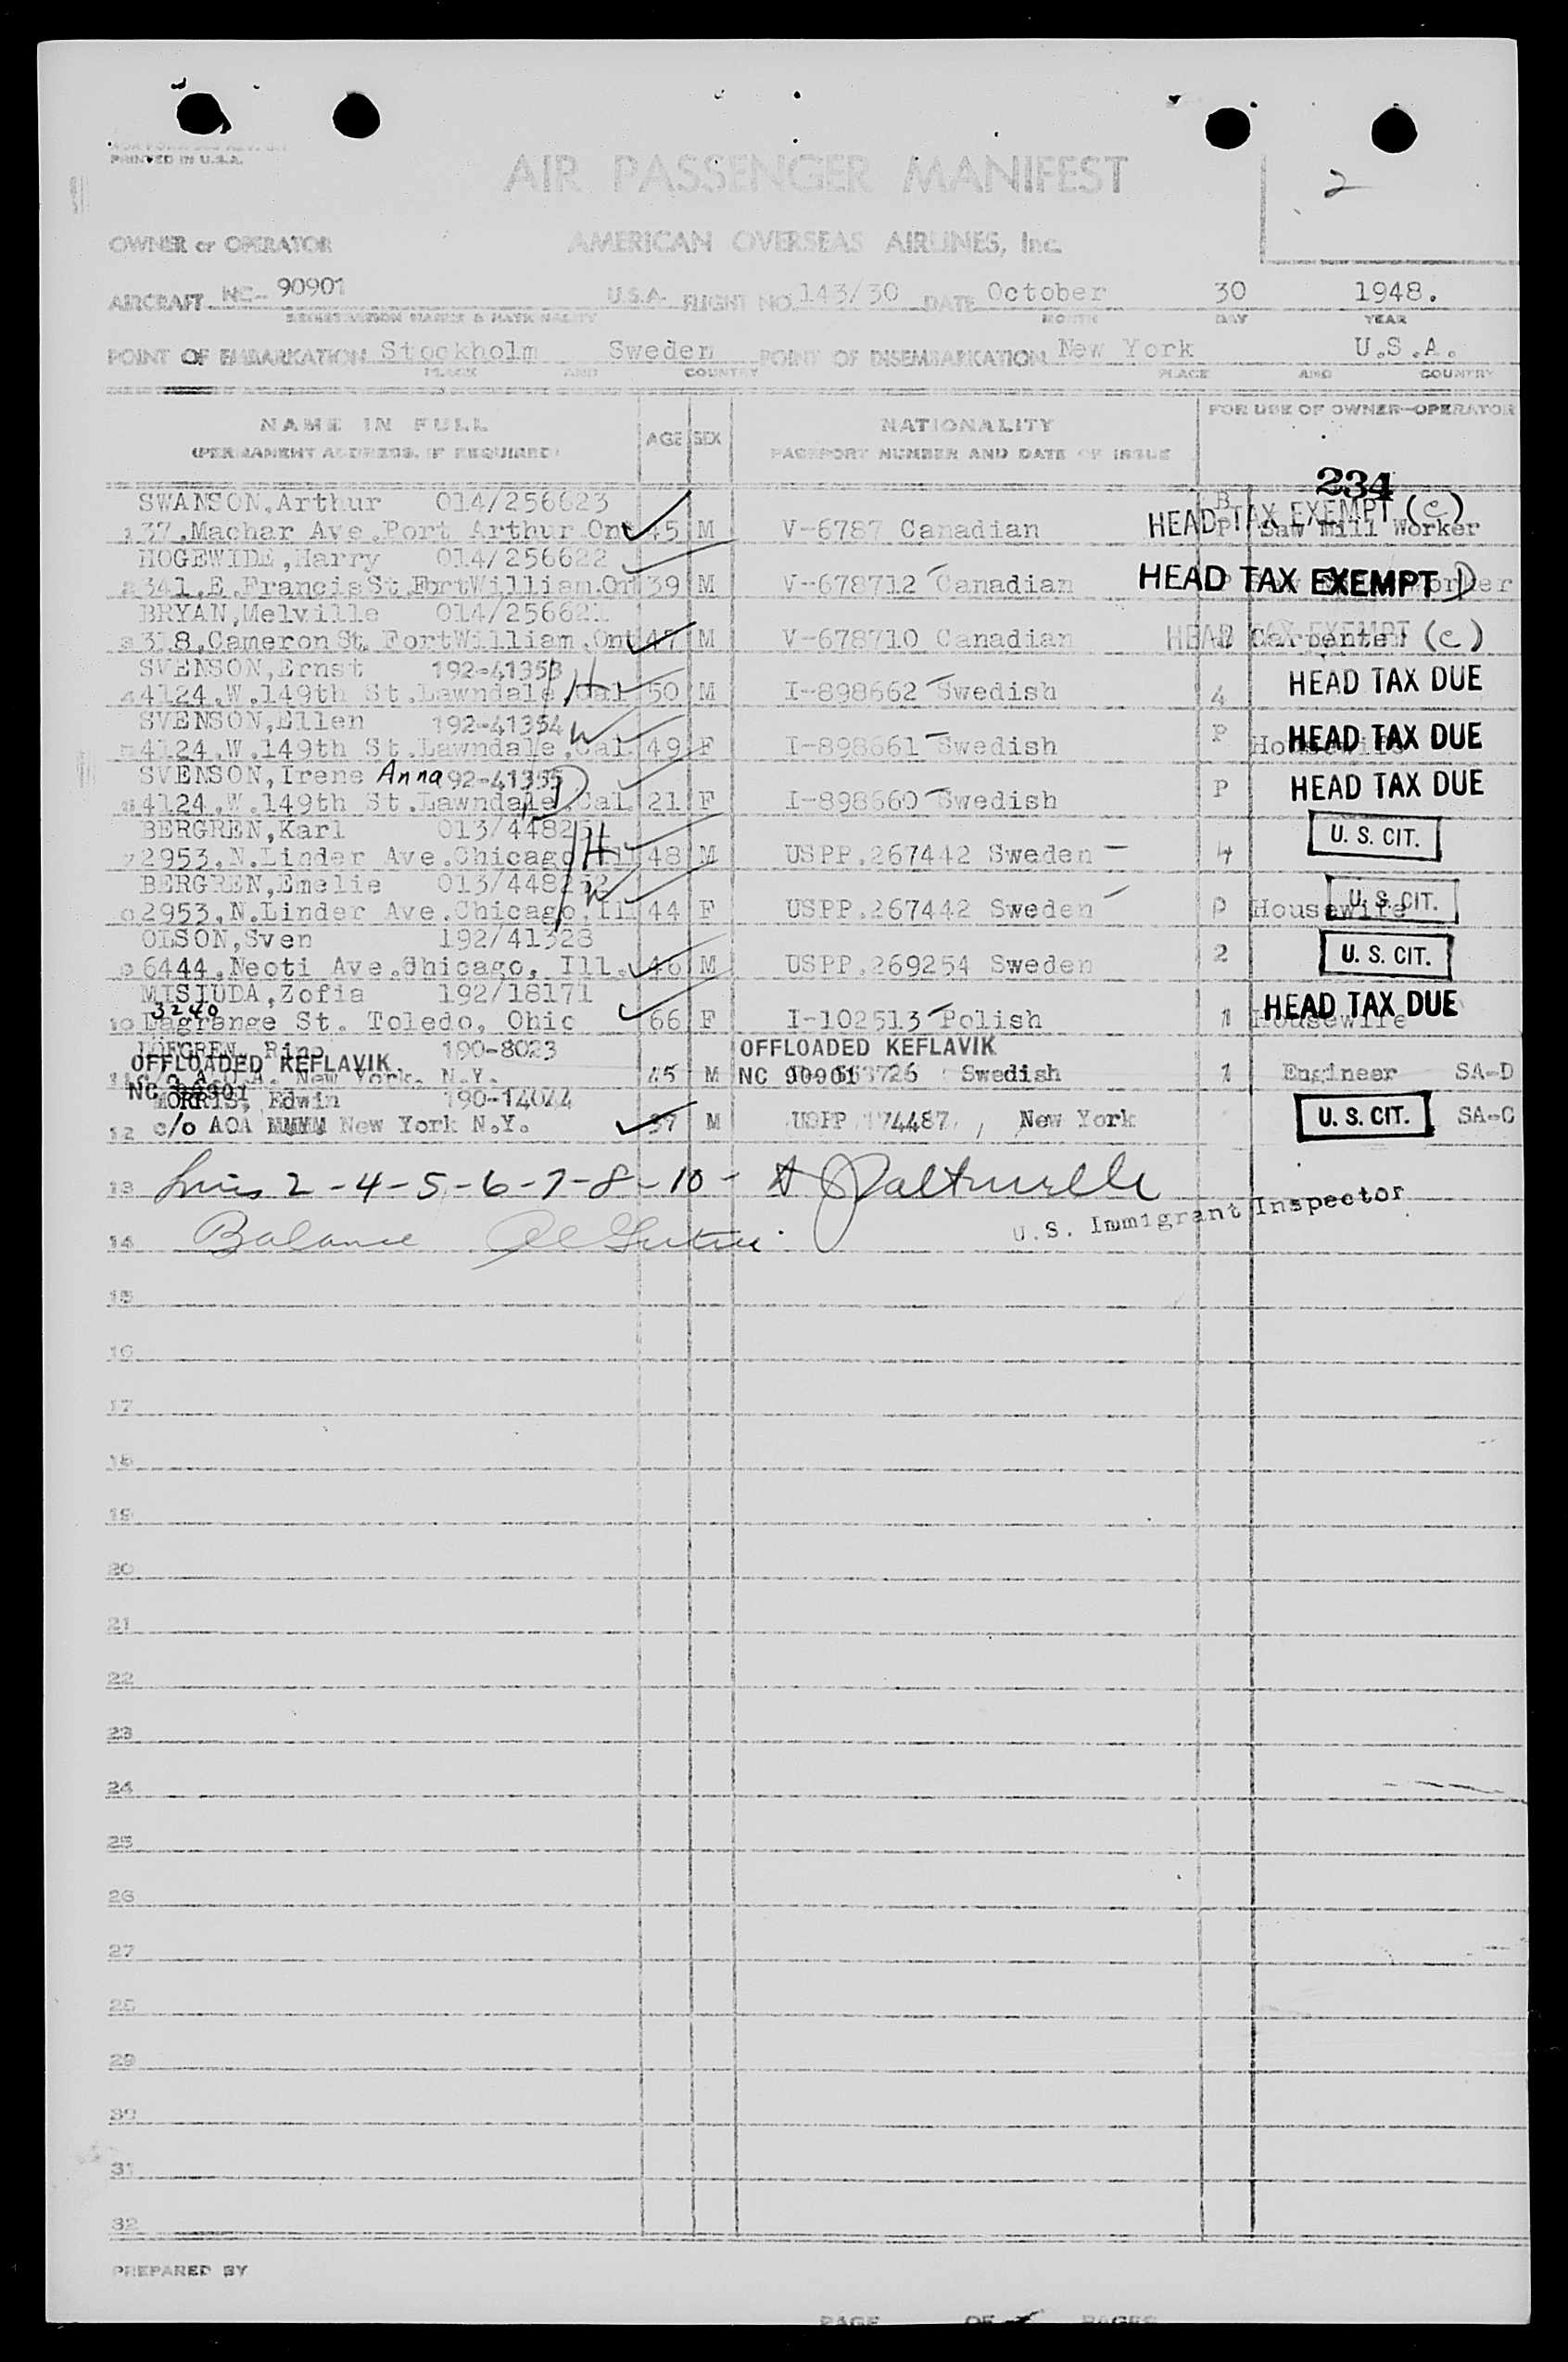 PRINTED IN U.S.A.
AIR PASSENGER MANIFEST
2
OWNER or OPERATOR AMERICAN OVERSEAS AIRLINES, Inc.
AIRCRAFT NC- 90901 U.S.A. FLIGHT NO. 143/30 DATE October 30 1948.
REGISTRATION MARKS & NATIONALITY MONTH DAY YEAR
POINT OF EMBARKATION Stockholm Sweden POINT OF DISEMBARKATION New York U.S.A.
PLACE AND COUNTRY PLACE AND COUNTRY
NAME IN FULL AGE SEX NATIONALITY FOR USE OF OWNER-OPERATOR
(PERMANENT ADDRESS, IF REQUIRED) PASSPORT NUMBER AND DATE OF ISSUE
234
SWANSON,Arthur 014/256623 B HEAD TAX EXEMPT (c)
1 37,Machar Ave.Port Arthur Ont 45 M V-6787 Canadian P Saw Mill Worker
HOGEWIDE,Harry 014/256622
2 341,E.FrancisSt.FortWilliam.On 39 M V-678712 Canadian HEAD TAX EXEMPT D
BRYAN,Melville 014/256621
3 318,Cameron St. FortWilliam.Ont 47 M V-678710 Canadian HEAD TAX EXEMPT Carpenter (c)
SVENSON,Ernst 192-41353 H
4 4124.W.149th St.Lawndale.Cal 50 M I-898662 Swedish 4 HEAD TAX DUE
SVENSON,Ellen 192-41354 W
5 4124.W.149th St.Lawndale.Cal 49 F I-898661 Swedish P Housewife HEAD TAX DUE
SVENSON,Irene Anna 192-41355 D
6 4124.W.149th St.Lawndale.Cal. 21 F I-898660 Swedish P HEAD TAX DUE
BERGREN,Karl 013/448251 H
7 2953.N.Linder Ave.Chicago Ill 48 M USPP.267442 Sweden 4 U. S. CIT.
BERGREN,Emelie 013/448252 W
8 2953.N.Linder Ave.Chicago.Ill 44 F USPP.267442 Sweden P Housewife U. S. CIT.
OLSON,Sven 192/41328
9 6444.Neoti Ave.Chicago, Ill. 46 M USPP.269254 Sweden 2 U. S. CIT.
MISIUDA,Zofia 192/18171
3240
10 Lagrange St. Toledo, Ohio 66 F I-102513 Polish 1 Housewife HEAD TAX DUE
LOFGREN, Rino 190-8023 OFFLOADED KEFLAVIK
OFFLOADED KEFLAVIK
11 c/o A.O.A. New York. N.Y. 45 M NC 90901 Swedish 1 Engineer SA-D
NC 90901
MORRIS, Edwin 190-14044
12 c/o AOA New York N.Y. 37 M USPP 174487, New York U. S. CIT. SA-C
13 Lines 2-4-5-6-7-8-10-
U.S. Immigrant Inspector
14 Balance
15
16
17
18
19
20
21
22
23
24
25
26
27
28
29
30
31
32
PREPARED BY
PAGE OF PAGES